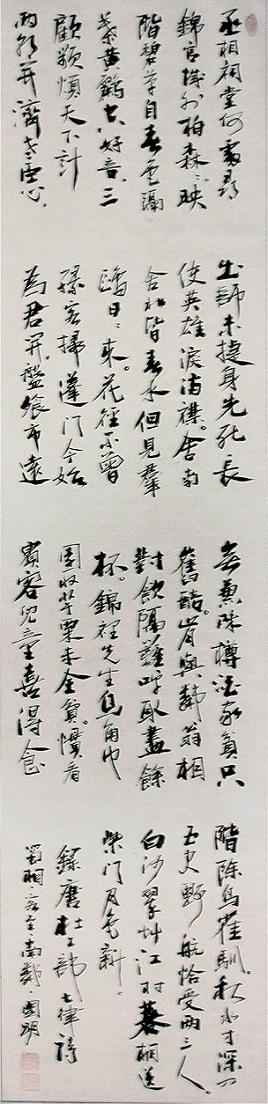 丞相祠堂何處尋
錦官城外柏森々映
階碧草自春色隔
葉黃鸝空好音三
顧頻煩天下計
兩朝開濟老臣心
出師未捷身先死長
使英雄淚滿襟。舍南
舍北皆春水但見羣
鷗日々來。花徑不曾
緣客掃蓬門今始
為君開。盤飧市遠
無兼味樽酒家貧只
舊醅。肯與鄰翁相
對飲隔籬呼取盡餘
杯。錦裡先生烏角巾
園收芋栗未全貧。慣看
賓客兒童喜得食
階除鳥雀馴。秋水才深四
五尺野航恰受兩三人。
白沙翠竹江村暮相送
柴門月色新。
錄唐杜工部七律詩
蜀相・客至・南鄰・國明